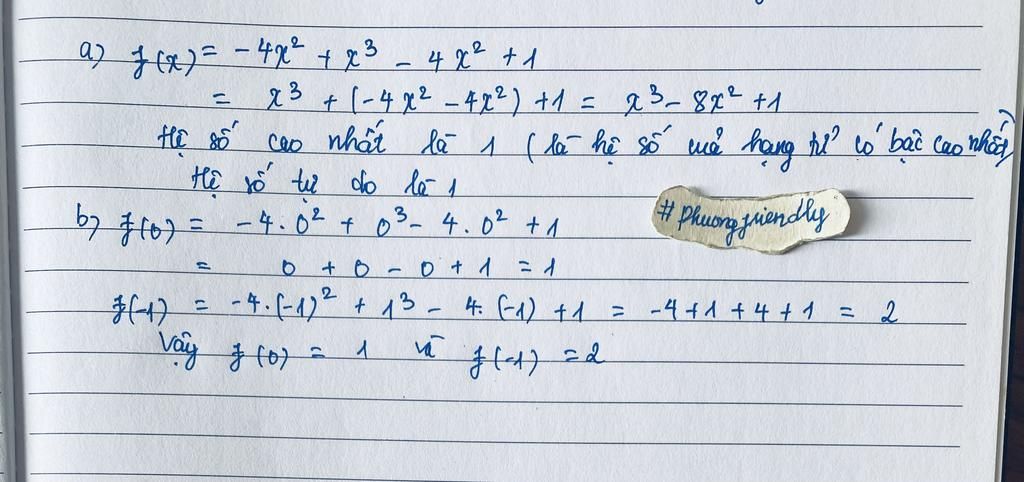 a) f(x) = -4x² + x³ - 4x² + 1
= x³ + (-4x² - 4x²) + 1 = x³ - 8x² + 1
Hệ số cao nhất là 1 (là hệ số của hạng tử có bậc cao nhất)
Hệ số tự do là 1
b) f(0) = -4.0² + 0³ - 4.0² + 1
#Phuongfriendly
= 0 + 0 - 0 + 1 = 1
f(-1) = -4.(-1)² + 1³ - 4.(-1) + 1 = -4 + 1 + 4 + 1 = 2
Vậy f(0) = 1 và f(-1) = 2